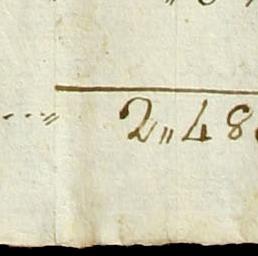 2〃48